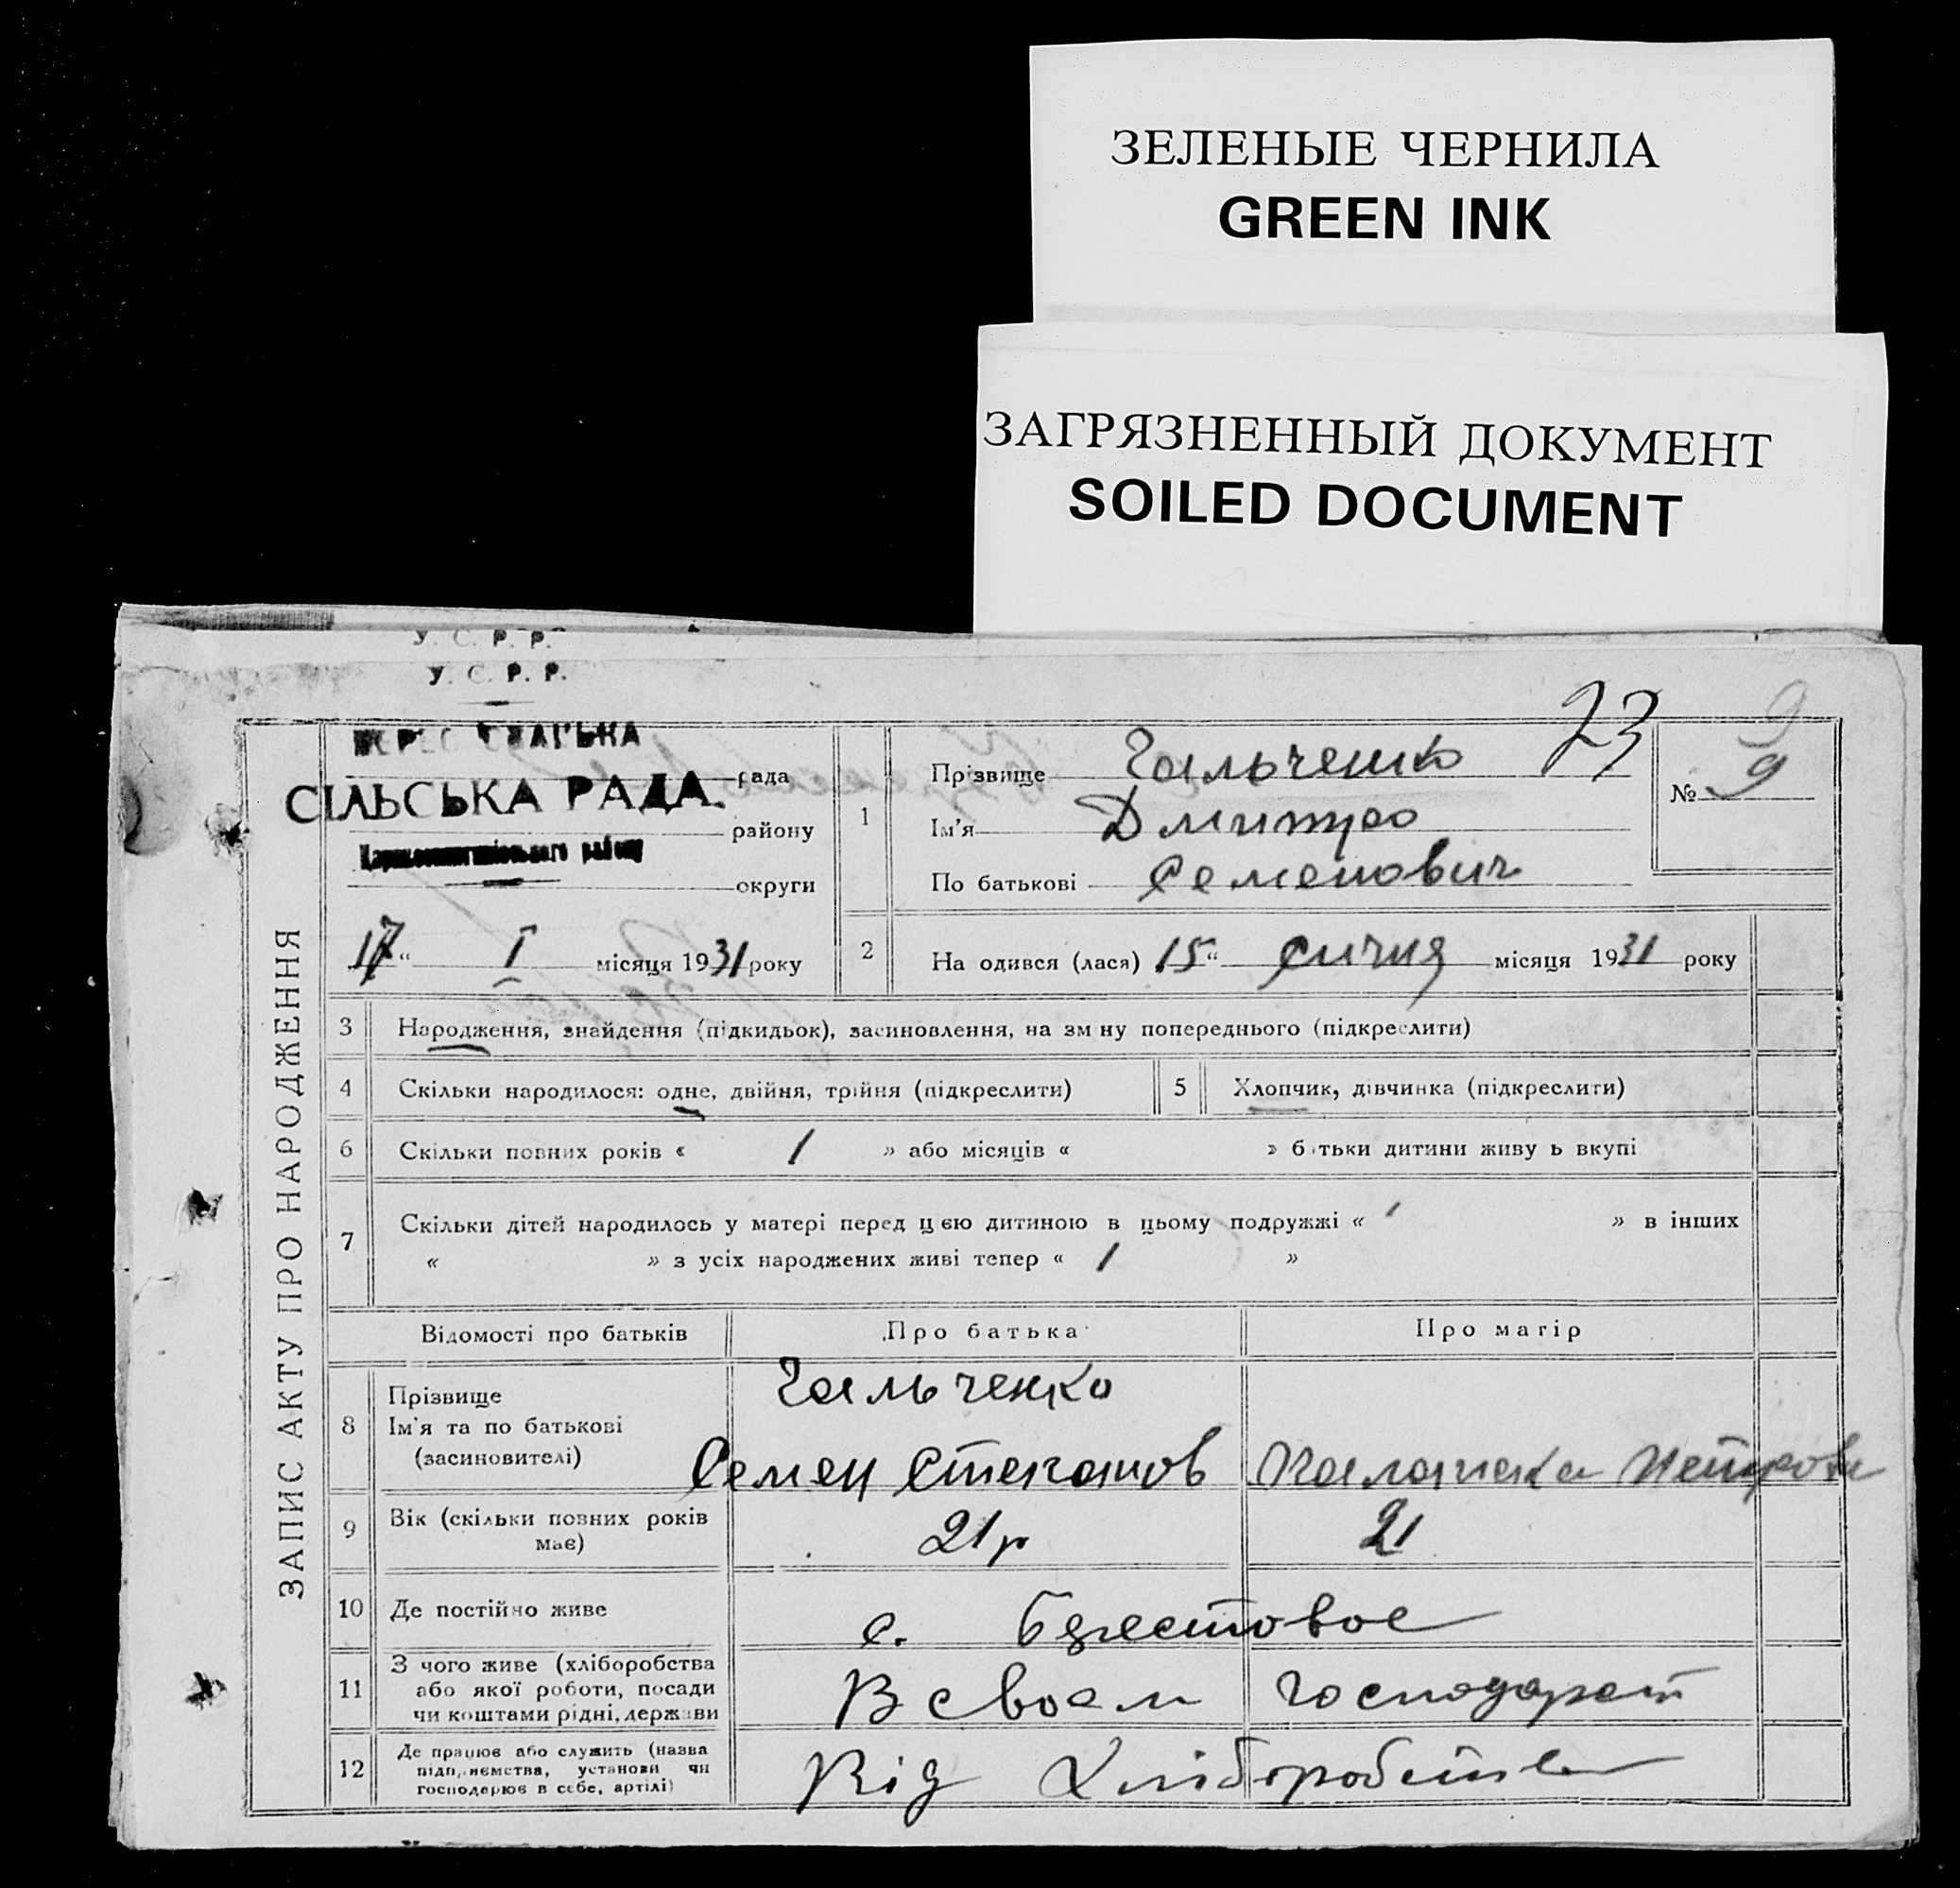 ЗЕЛЕНЫЕ ЧЕРНИЛА
GREEN INK
ЗАГРЯЗНЕННЫЙ ДОКУМЕНТ
SOILED DOCUMENT
У. С. Р. Р.
У. С. Р. Р.
23
9
рада
СІЛЬСЬКА РАДА.
району
району
округи
17 " I місяця 1931 року
ЗАПИС АКТУ ПРО НАРОДЖЕННЯ
1 Прізвище Гальченко
Ім'я Дмитро
По батькові Семенович
№ 9
2 На одився (лася) 15 " Січня місяця 1931 року
3 Народження, знайдення (підкидьок), засиновлення, на зм ну попереднього (підкреслити)
4 Скільки народилося: одне, двійня, трійня (підкреслити) 5 Хлопчик, дівчинка (підкреслити)
6 Скільки повних років « 1 » або місяців « » б тьки дитини живу ь вкупі
7 Скільки дітей народилось у матері перед цею дитиною в цьому подружжі « » в інших
« » з усіх народжених живі тепер « 1 »
Відомості про батьків Про батька Про матір
8 Прізвище Гальченко
Ім'я та по батькові
(засиновителі) Семен Степанов Петрова
9 Вік (скільки повних років має) 21р 21
10 Де постійно живе с. Берестовое
11 З чого живе (хліборобства
або якої роботи, посади
чи коштами рідні, держави В своем господарст
12 Де працює або служить (назва
підприємства, установи чи
господарює в себе, артілі) Від Хліборобства